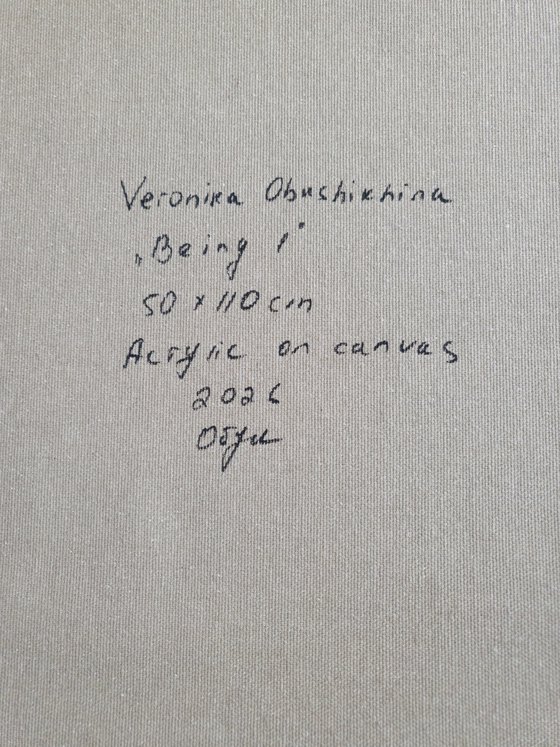 Veronika Obushikhina
„Being 1"
50 x 110 cm
Acrylic on canvas
2026